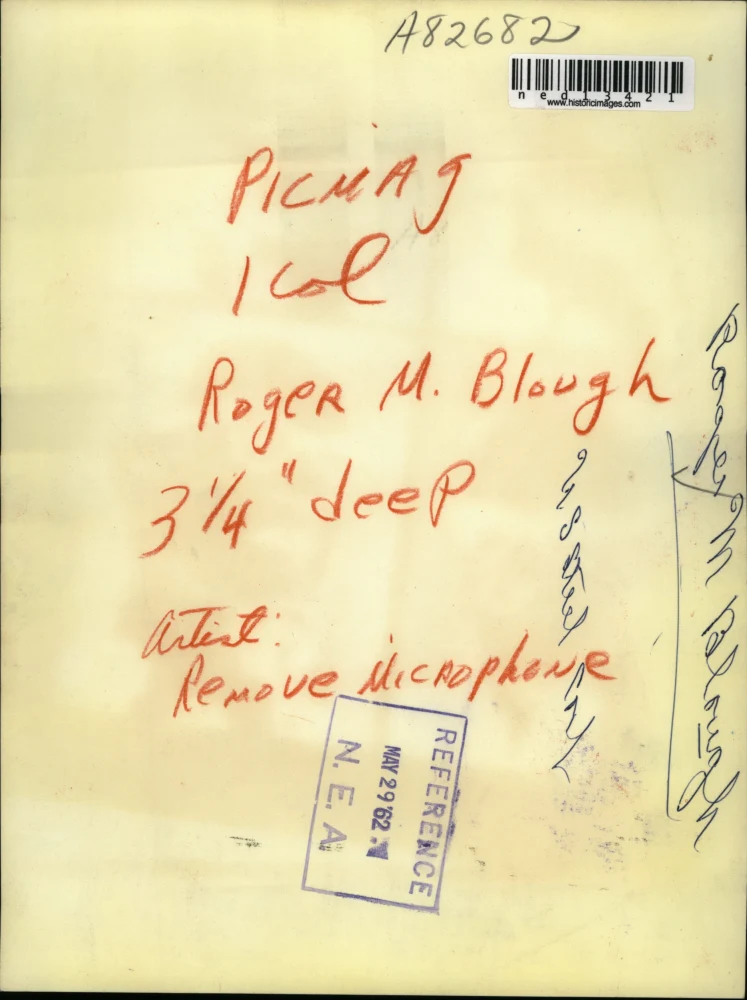 A82682
ned13421
www.historicimages.com
PICMAg
1 col
Roger M. Blough
3 1/4" deep
Artist:
Remove Microphone
Roger M Blough
U S Steel
REFERENCE
MAY 29 '62
N. E. A.